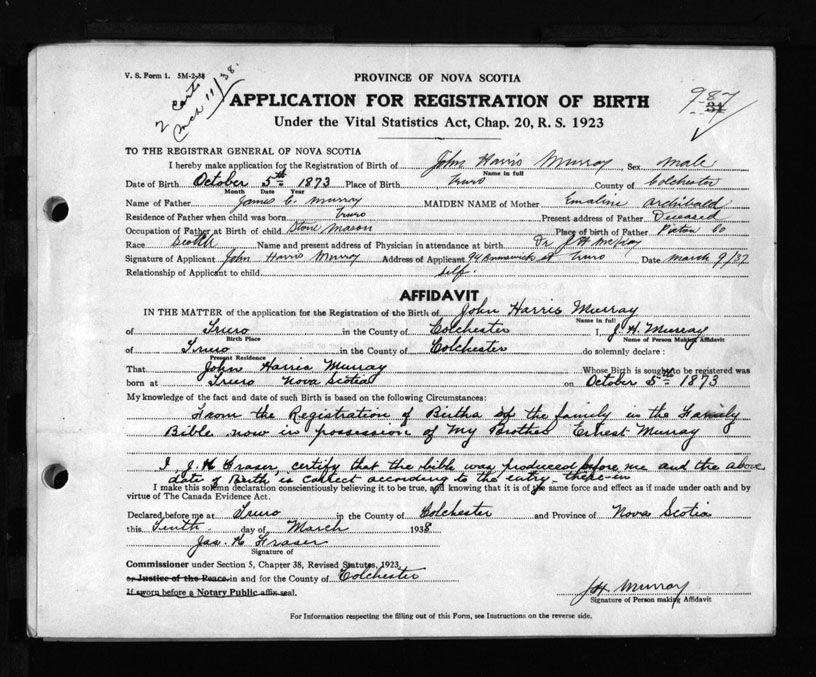 V. S. Form 1. 5M-2-38
2 certs
Mch 11/38.
PROVINCE OF NOVA SCOTIA
APPLICATION FOR REGISTRATION OF BIRTH
987
34
Under the Vital Statistics Act, Chap. 20, R. S. 1923
TO THE REGISTRAR GENERAL OF NOVA SCOTIA
I hereby make application for the Registration of Birth of John Harris Murray Sex male
Name in full
Date of Birth October 5th 1873 Place of Birth Truro County of Colchester
Month Date Year
Name of Father James C. Murray MAIDEN NAME of Mother Emaline Archibald
Residence of Father when child was born Truro Present address of Father Deceased
Occupation of Father at Birth of child Stone Mason Place of birth of Father Pictou Co
Race Scotch Name and present address of Physician in attendance at birth Dr J H McKay
Signature of Applicant John Harris Murray Address of Applicant 94 Brunswick st Truro Date March 9/37
Relationship of Applicant to child self.
AFFIDAVIT
IN THE MATTER of the application for the Registration of the Birth of John Harris Murray
Name in full
of Truro in the County of Colchester I, J. H. Murray
Birth Place Name of Person Making Affidavit
of Truro in the County of Colchester do solemnly declare :
Present Residence
That John Harris Murray Whose Birth is sought to be registered was
born at Truro Nova Scotia on October 5th 1873
My knowledge of the fact and date of such Birth is based on the following Circumstances:
From the Registration of Births of the family in the Family
Bible now in possession of My Brother Ernest Murray
I J. H Fraser, certify that the bible was produced before me and the above
date of Birth is correct according to the entry there-in
I make this solemn declaration conscientiously believing it to be true, and knowing that it is of the same force and effect as if made under oath and by
virtue of The Canada Evidence Act.
Declared before me at Truro in the County of Colchester and Province of Nova Scotia
this Tenth day of March 1938
Jas. H Fraser
Signature of
Commissioner under Section 5, Chapter 38, Revised Statutes, 1923,
or Justice of the Peace in and for the County of Colchester
If sworn before a Notary Public affix seal.
JH Murray
Signature of Person making Affidavit
For Information respecting the filling out of this Form, see Instructions on the reverse side.